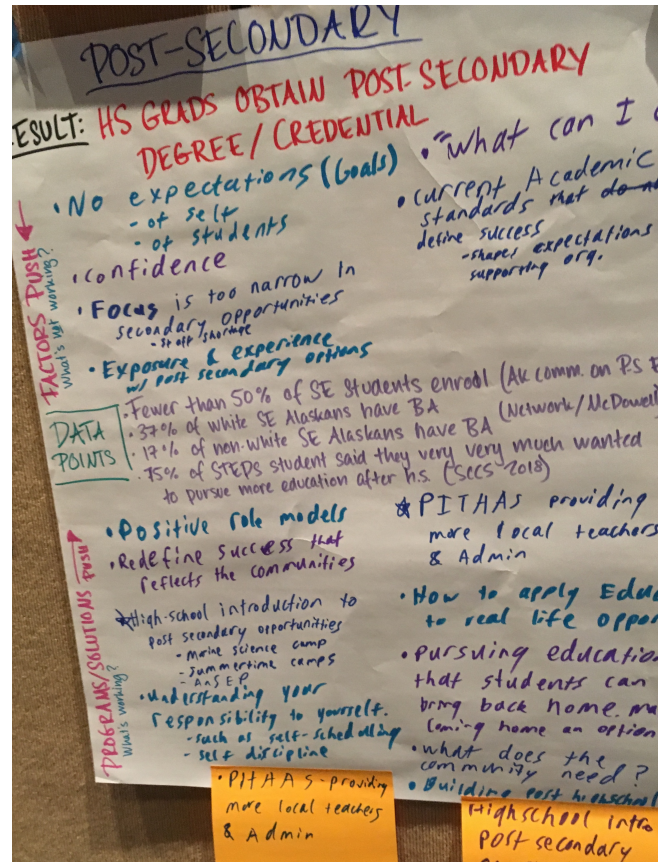 POST-SECONDARY
ESULT: HS GRADS OBTAIN POST SECONDARY
DEGREE/CREDENTIAL
FACTORS PUSH
What's not working?
• No expectations (Goals)
- of self
- of students
• Confidence
• Focus is too narrow in
secondary opportunities
- staff shortage
• Exposure & experience
w/ post secondary options
• "What can I
• Current Academic
standards that do
define success
- shapes expectations
supporting org.
DATA
POINTS
• Fewer than 50% of SE Students enroll (AK comm. on P.S
• 37% of white SE Alaskans have BA (Network/McDowell
• 17% of non-white SE Alaskans have BA
• 75% of STEPS student said they very very much wanted
to pursue more education after h.s. (SCCS 2018)
PROGRAMS/SOLUTIONS PUSH
What's working?
• Positive role models
• Redefine success that
reflects the communities
☆ High-school introduction to
post secondary opportunities
- marine science camp
- summertime camps
- AnSEP
• Understanding your
responsibility to yourself.
- such as self-scheduling
- self discipline
☆ PITHAAs providing
more local teachers
& Admin
• How to apply Educ
to real life oppor
• Pursuing educatio
that students can
bring back home. ma
coming home an option
• what does the
community need?
• Building post highschool
• PITHAAS-providing
more local teachers
& Admin
Highschool intro
post secondary